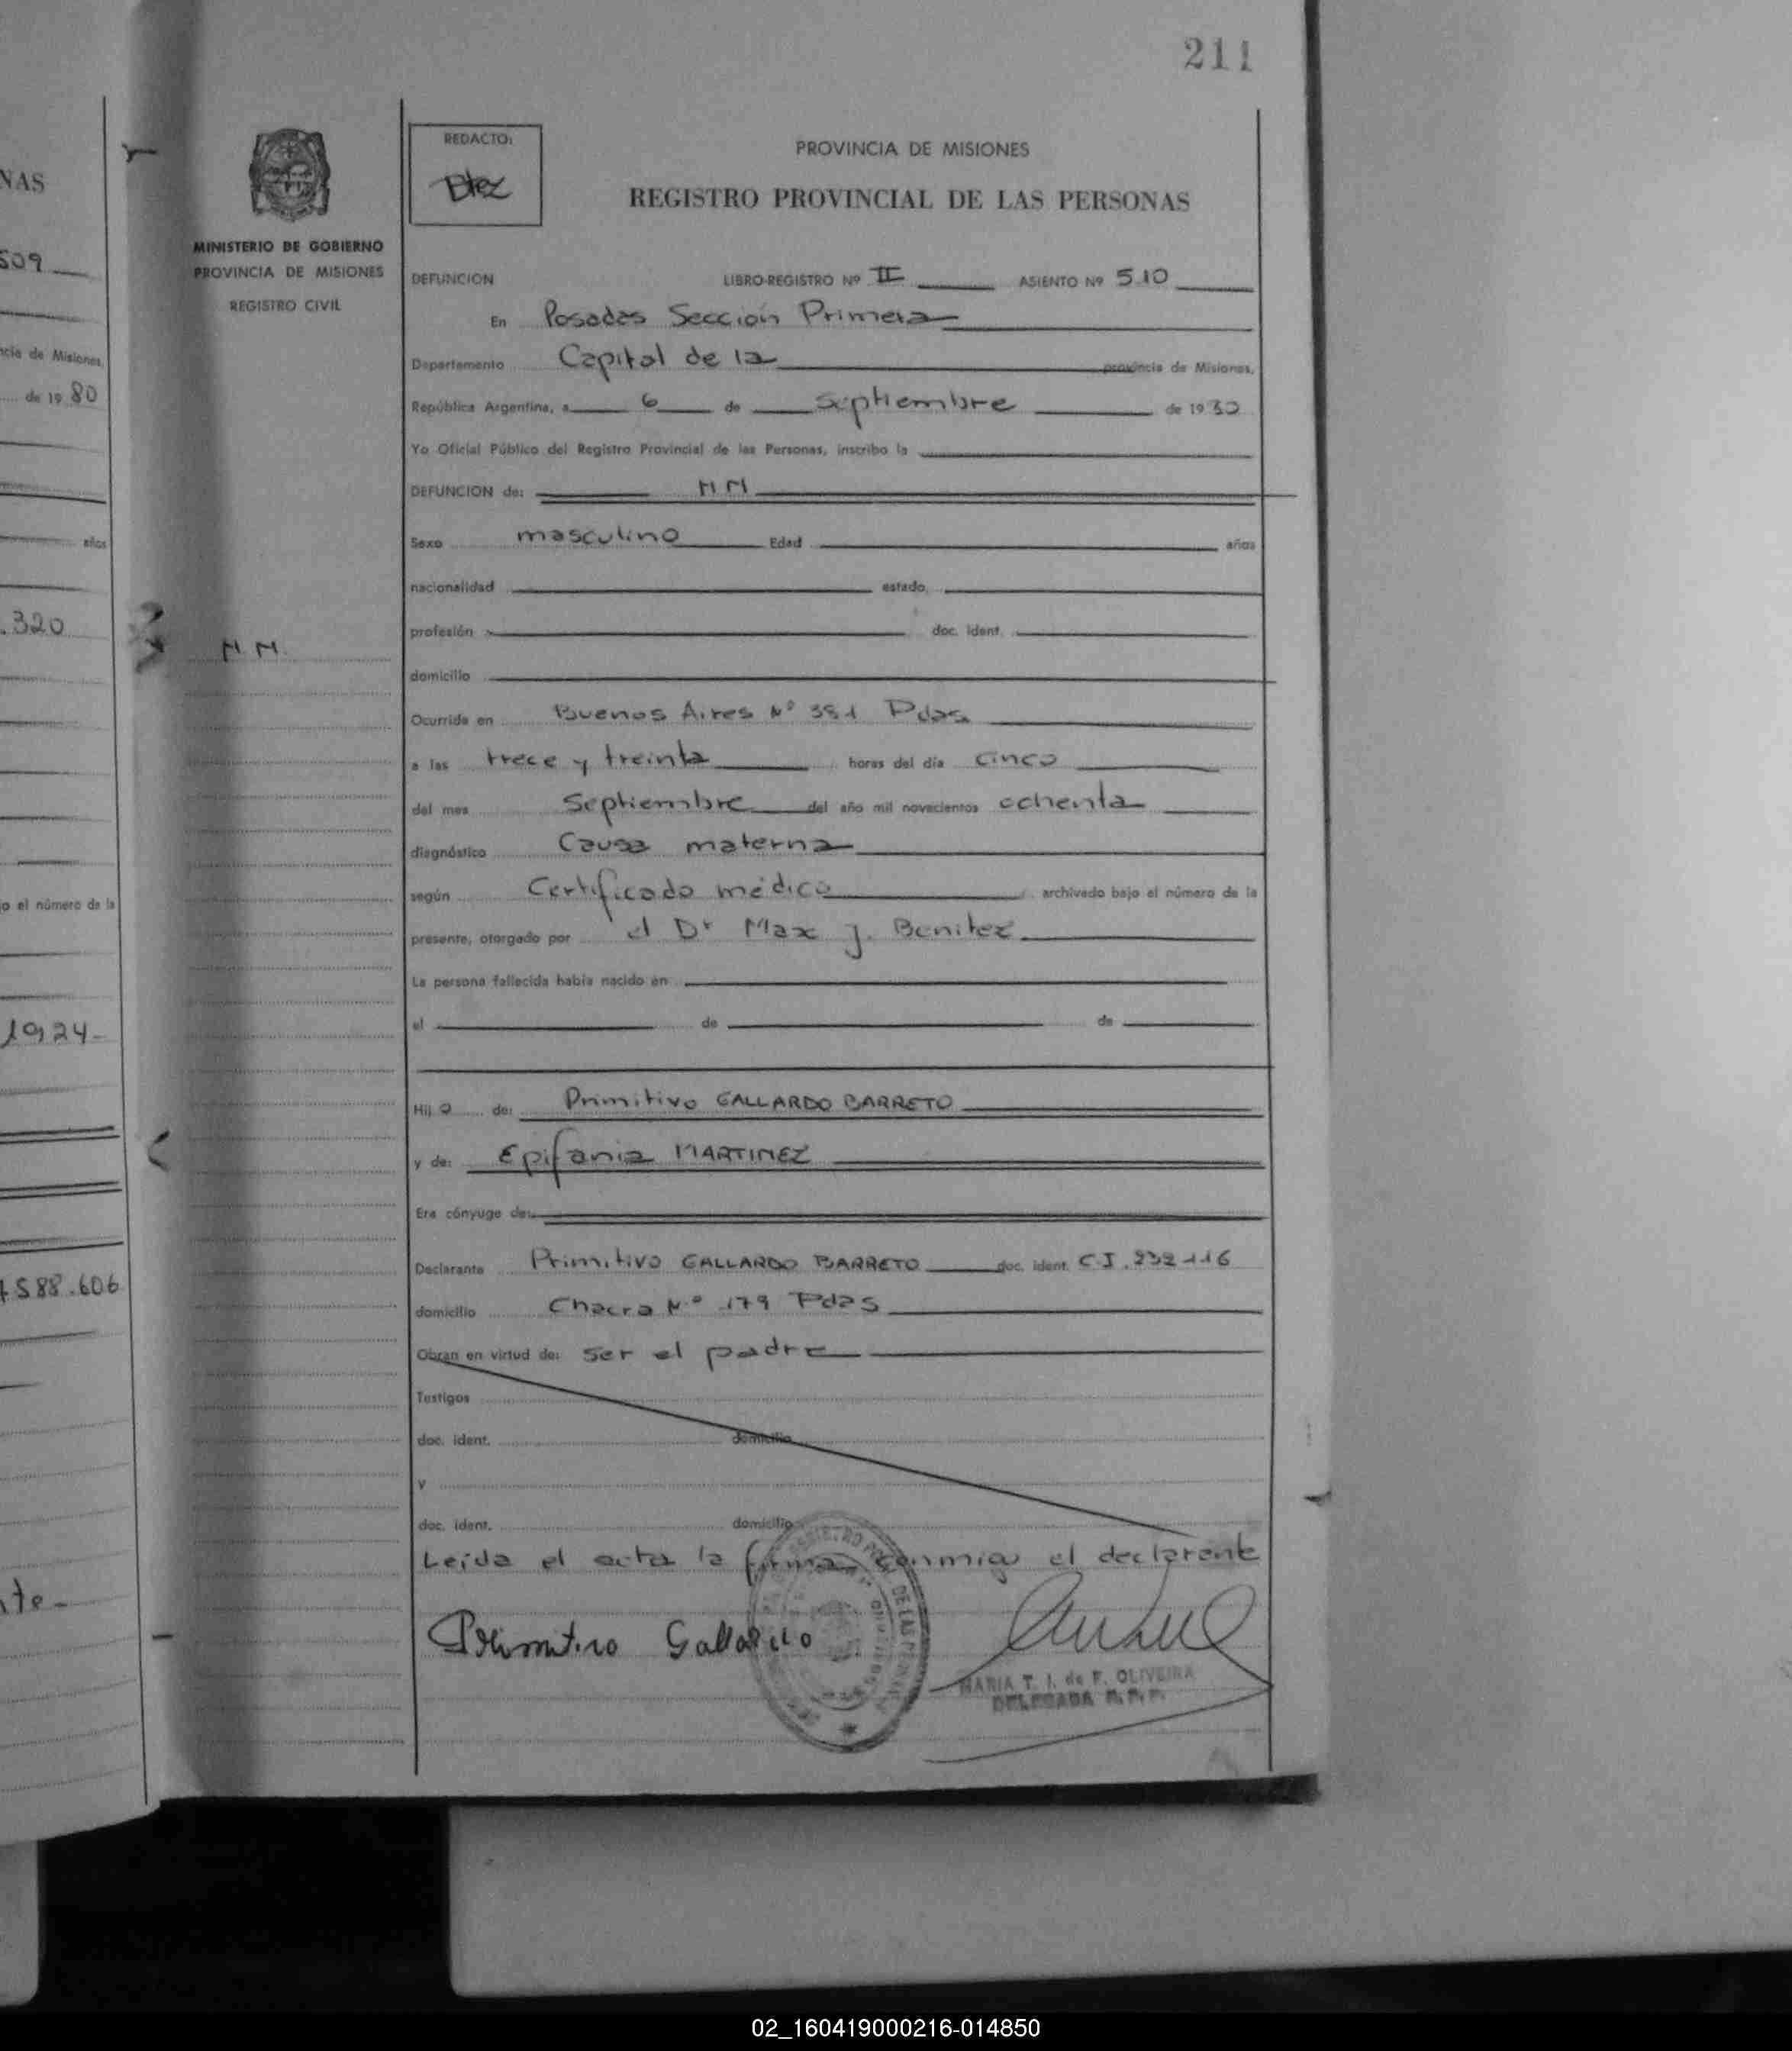 211
NAS
509
ncia de Misiones
de 19 80
años
.320
o el número de la
1924-
588.606
te-
MINISTERIO DE GOBIERNO
PROVINCIA DE MISIONES
REGISTRO CIVIL
N.N.
REDACTO:
Btez
PROVINCIA DE MISIONES
REGISTRO PROVINCIAL DE LAS PERSONAS
DEFUNCION LIBRO-REGISTRO Nº II ASIENTO Nº 510
En Posadas Sección Primera
Departamento Capital de la provincia de Misiones,
República Argentina, a 6 de Septiembre de 1980
Yo Oficial Público del Registro Provincial de las Personas, inscribo la
DEFUNCION de: N N
Sexo masculino Edad años
nacionalidad estado
profesión doc. ident.
domicilio
Ocurrida en Buenos Aires Nº 381 Pdas
a las trece y treinta horas del día cinco
del mes Septiembre del año mil novecientos ochenta
diagnóstico Causa materna
según Certificado médico archivado bajo el número de la
presente, otorgado por el Dr Max J. Benitez
La persona fallecida había nacido en
el de de
Hijo de: Primitivo GALLARDO BARRETO
y de: Epifania MARTINEZ
Era cónyuge de:
Declarante Primitivo GALLARDO BARRETO doc. ident. C.I. 232116
domicilio Chacra Nº 179 Pdas
Obran en virtud de: ser el padre
Testigos
doc. ident. domicilio
y
doc. ident. domicilio
Leida el acta la firma conmigo el declarante
Primitivo Gallardo
MARIA T. I. de F. OLIVEIRA
DELEGADA R.P.P.
02_160419000216-014850